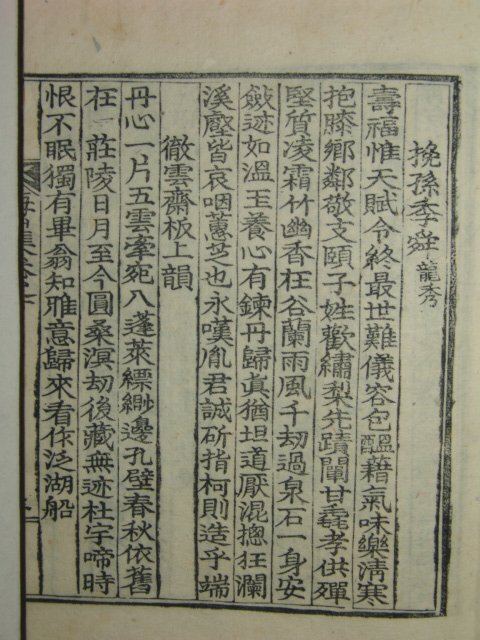 挽孫季舜 龍秀
壽福惟天賦令終最世難儀容包醞藉氣味樂淸寒
抱膝鄕鄰敬支頤子姓歡繡梨先蹟闡甘毳孝供殫
堅質凌霜竹幽香在谷蘭雨風千劫過泉石一身安
斂迹如溫玉養心有鍊丹歸眞猶坦道厭混摠狂瀾
溪壑皆哀咽蕙芝也永嘆胤君誠斫指柯則造乎端
徹雲齋板上韻
丹心一片五雲牽死入蓬萊縹緲邊孔壁春秋依舊
在 莊陵日月至今圓桑溟劫後藏無迹杜宇啼時
恨不眠獨有畢翁知雅意歸來看作泛湖船